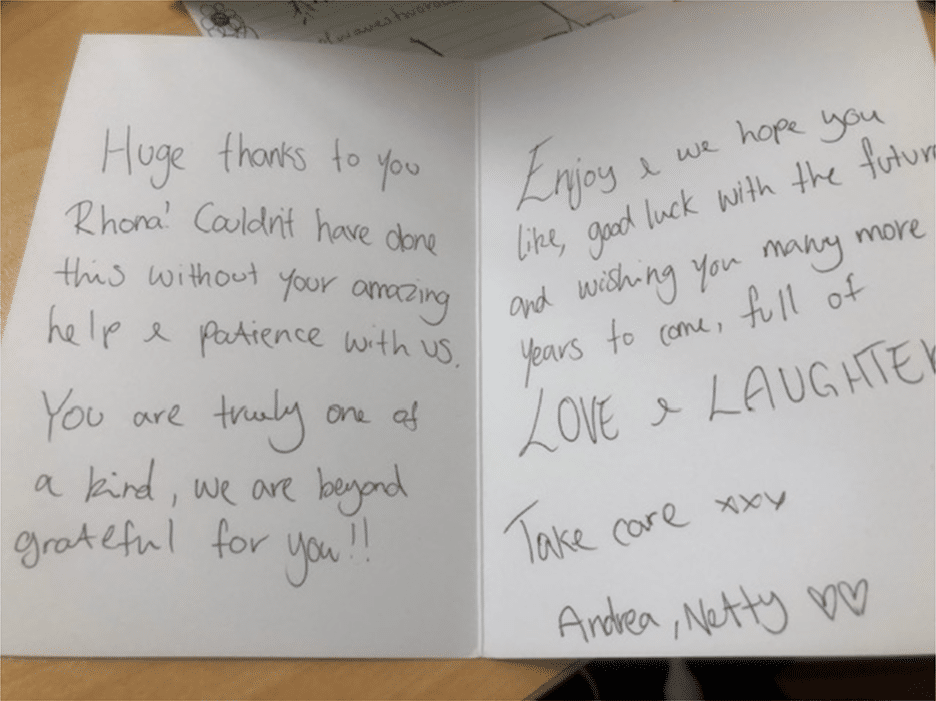 Huge thanks to you
Rhona! Couldn't have done
this without your amazing
help & patience with us.
You are truely one of
a kind, we are beyond
grateful for you!!
Enjoy & we hope you
like, good luck with the futur
and wishing you many more
years to come, full of
LOVE & LAUGHTER
Take care xxx
Andrea, Netty ♡♡